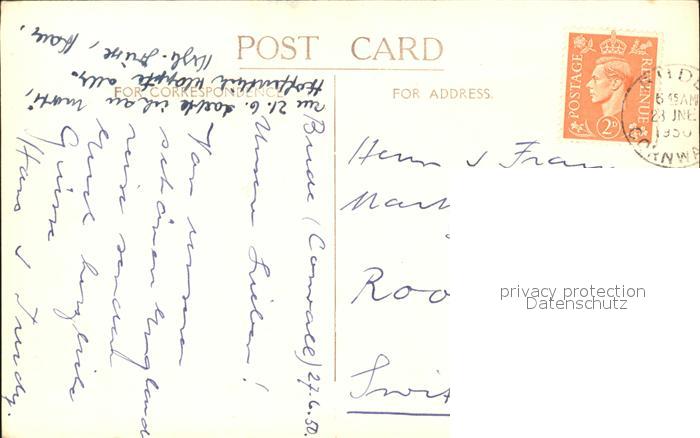 POST CARD
FOR CORRESPONDENCE
FOR ADDRESS.
POSTAGE REVENUE
2D
BUDE
6 45 AM
28 JNE
1950
CORNWA
Bude (Cornwall) 27.6.50.
Unsere Lieben!
Von unserer
schönen England
reise senden
Euch herzliche
Grüsse
Hans & Trudy.
am 21.6.
Hoffentlich klappte alles.
Herrn & Frau
Roo
Swit
privacy protection
Datenschutz